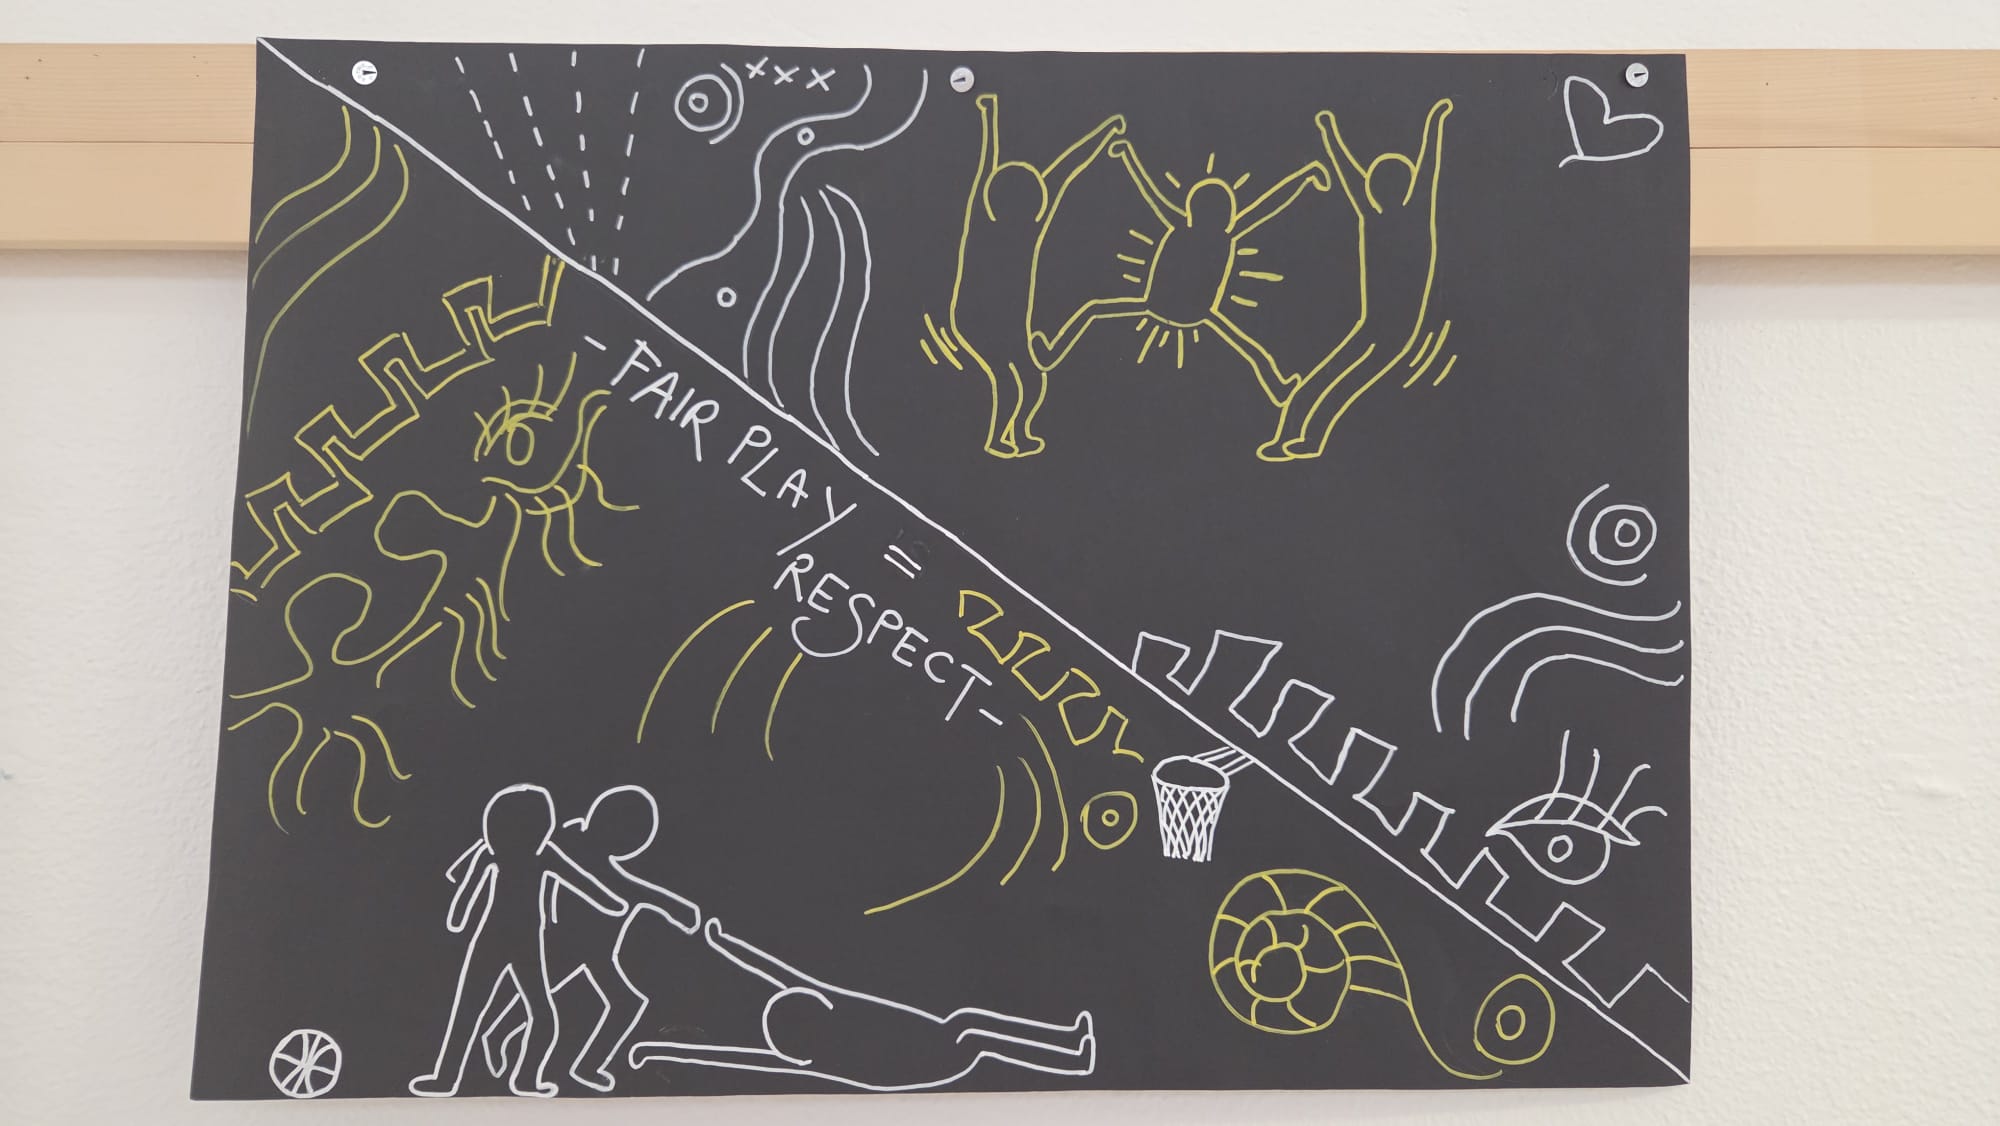 XXX
- FAIR PLAY =
RESPECT -